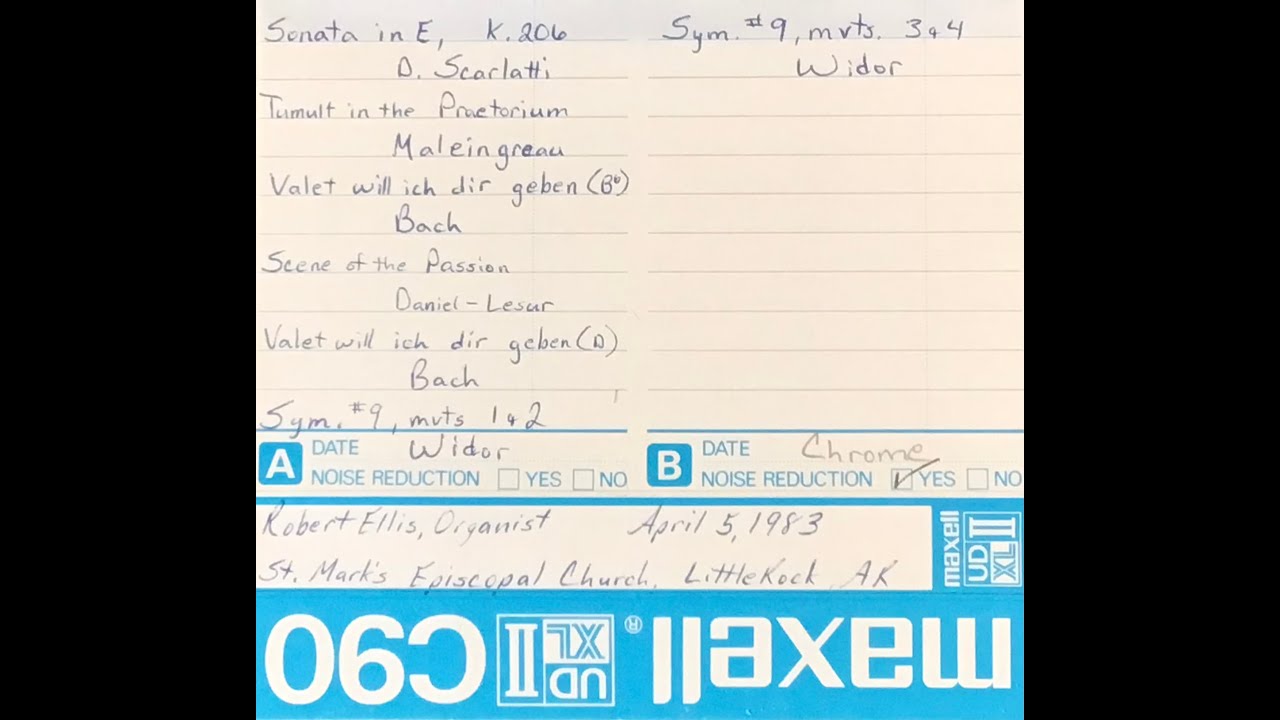 Sonata in E, K.206
D. Scarlatti
Tumult in the Praetorium
Maleingreau
Valet will ich dir geben (B♭)
Bach
Scene of the Passion
Daniel-Lesur
Valet will ich dir geben (D)
Bach
Sym. #9, mvts 1 & 2
Widor
A DATE
NOISE REDUCTION YES NO
Sym. #9, mvts. 3 & 4
Widor
B DATE Chrome
NOISE REDUCTION ✓ YES NO
Robert Ellis, Organist April 5, 1983
St. Mark's Episcopal Church, Little Rock, AR
maxell UD XL II
maxell® UD XL II C90